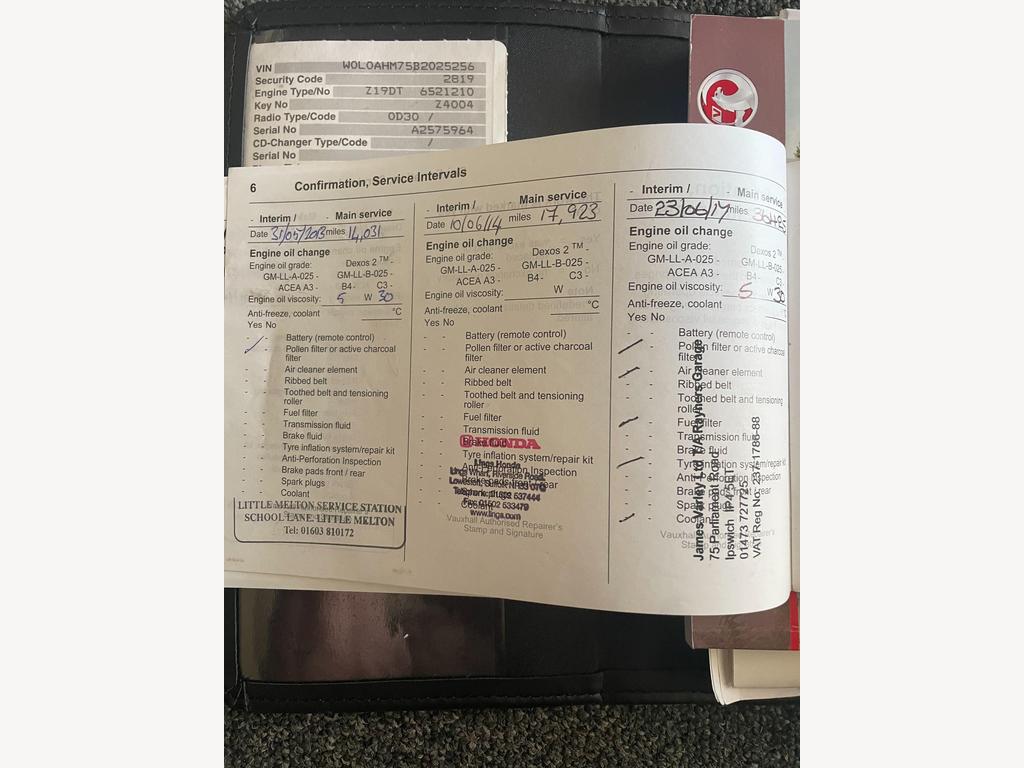 VIN W0L0AHM75B2025256
Security Code 2819
Engine Type/No Z19DT 6521210
Key No Z4004
Radio Type/Code 0D30 /
Serial No A2575964
CD-Changer Type/Code /
Serial No
6 Confirmation, Service Intervals
- Interim / - Main service
Date 31/05/2013 miles 14,031
Engine oil change
Engine oil grade: Dexos 2 TM -
GM-LL-A-025 - GM-LL-B-025 -
ACEA A3 - B4 - C3 -
Engine oil viscosity: 5 W 30
Anti-freeze, coolant °C
Yes No
- - Battery (remote control)
- Pollen filter or active charcoal
filter
- - Air cleaner element
- - Ribbed belt
- - Toothed belt and tensioning
roller
- - Fuel filter
- - Transmission fluid
- - Brake fluid
- - Tyre inflation system/repair kit
- - Anti-Perforation Inspection
- - Brake pads front / rear
- - Spark plugs
- - Coolant
LITTLE MELTON SERVICE STATION
SCHOOL LANE LITTLE MELTON
Tel: 01603 810172
- Interim / - Main service
Date 10/06/14 miles 17,923
Engine oil change
Engine oil grade: Dexos 2 TM -
GM-LL-A-025 - GM-LL-B-025 -
ACEA A3 - B4 - C3 -
Engine oil viscosity: W
Anti-freeze, coolant °C
Yes No
- - Battery (remote control)
- - Pollen filter or active charcoal
filter
- - Air cleaner element
- - Ribbed belt
- - Toothed belt and tensioning
roller
- - Fuel filter
- - Transmission fluid
- - Brake fluid
- - Tyre inflation system/repair kit
- - Anti-Perforation Inspection
- - Brake pads front / rear
- - Spark plugs
- - Coolant
HONDA
Lings Honda
Lings Wharf, Riverside Road,
Lowestoft, Suffolk NR33 0TQ
Telephone: 01502 537444
Fax: 01502 533479
www.lings.com
Vauxhall Authorised Repairer's
Stamp and Signature
- Interim / - Main service
Date 23/06/17 miles
Engine oil change
Engine oil grade: Dexos 2 TM -
GM-LL-A-025 - GM-LL-B-025 -
ACEA A3 - B4 - C3 -
Engine oil viscosity: 5 W 30
Anti-freeze, coolant
Yes No
- - Battery (remote control)
- Pollen filter or active charcoal
filter
- Air cleaner element
- - Ribbed belt
- - Toothed belt and tensioning
roller
- Fuel filter
- - Transmission fluid
- - Brake fluid
- Tyre inflation system/repair kit
- - Anti-Perforation Inspection
- - Brake pads front / rear
- - Spark plugs
- Coolant
James Varley Ltd T/A Rayners Garage
75 Parliament Road
Ipswich IP4 5ET
01473 727725
VAT Reg No: 237 1786-88